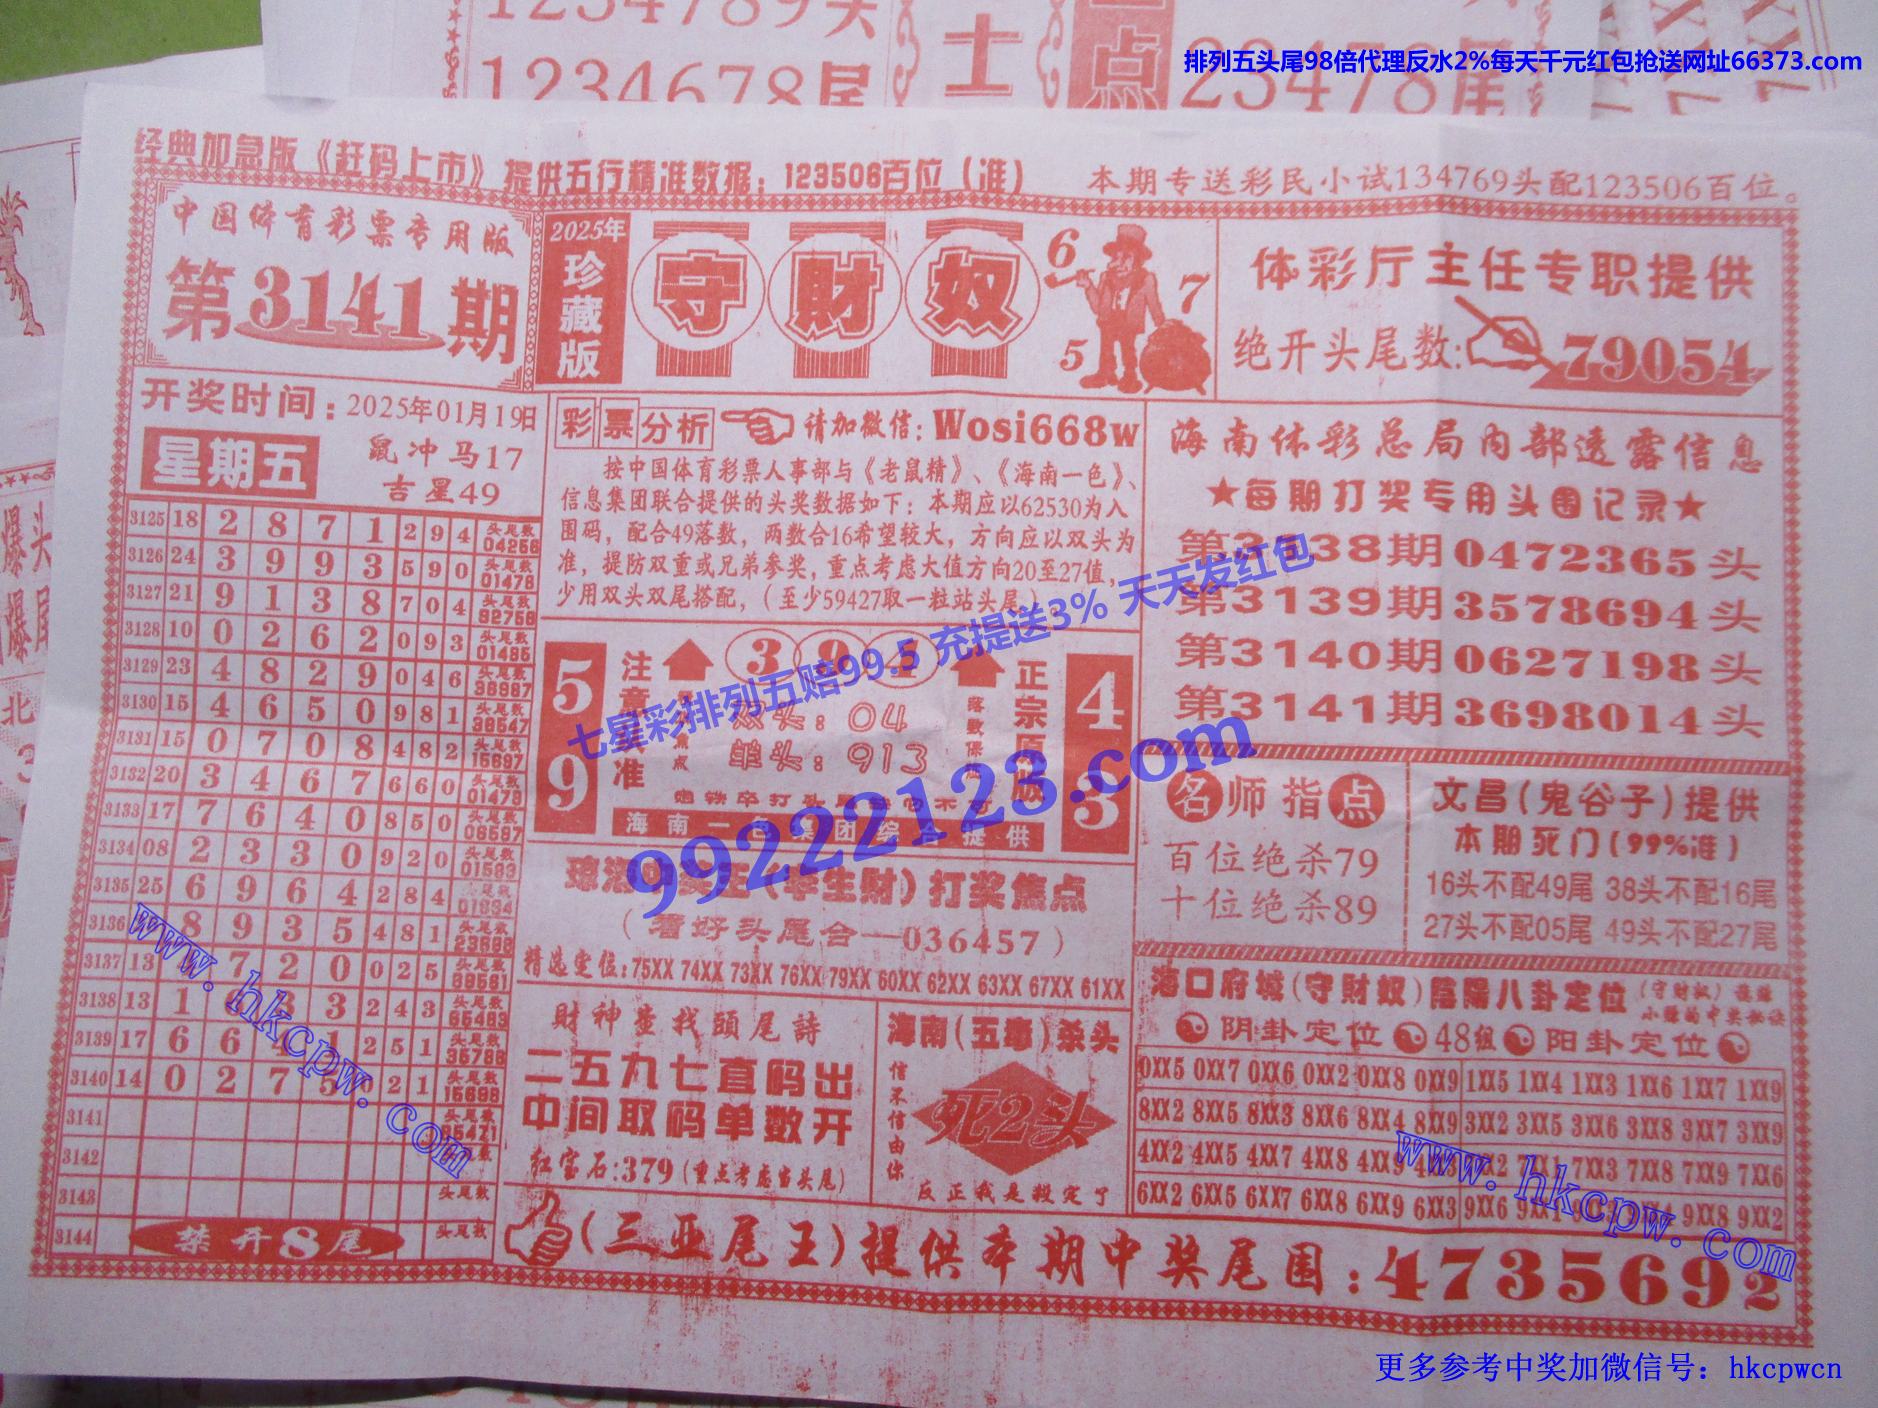 1234789头
1234678尾
士
点
23478尾
排列五头尾98倍代理反水2%每天千元红包抢送网址66373.com
经典加急版《赶码上市》提供五行精准数据：123506百位（准）
本期专送彩民小试134769头配123506百位。
中国体育彩票专用版
第3141期
2025年
珍藏版
守財奴
6
7
5
体彩厅主任专职提供
绝开头尾数：79054
开奖时间：2025年01月19日
星期五
鼠冲马17
吉星49
3125 18 2 8 7 1 2 9 4 头尾数 04256
3126 24 3 9 9 3 5 9 0 头尾数 01478
3127 21 9 1 3 8 7 0 4 头尾数 92758
3128 10 0 2 6 2 0 9 3 头尾数 01485
3129 23 4 8 2 9 0 4 6 头尾数 36987
3130 15 4 6 5 0 9 8 1 头尾数 38547
3131 15 0 7 0 8 4 8 2 头尾数 15697
3132 20 3 4 6 7 6 6 0 头尾数 01479
3133 17 7 6 4 0 8 5 0 头尾数 06597
3134 08 2 3 3 0 9 2 0 头尾数 01583
3135 25 6 9 6 4 2 8 4 头尾数
3136 8 9 3 5 4 8 1 头尾数 23689
3137 13 7 2 0 0 2 5 头尾数
3138 13 1 3 2 4 3 头尾数 65483
3139 17 6 6 4 1 2 5 1 头尾数 35786
3140 14 0 2 7 5 0 2 1 头尾数 15698
3141 头尾数
3142
3143 头尾数
3144 头尾数
禁开8尾
彩票分析
请加微信：Wosi668w
按中国体育彩票人事部与《老鼠精》、《海南一色》、
信息集团联合提供的头奖数据如下：本期应以62530为入
围码，配合49落数，两数合16希望较大，方向应以双头为
准，提防双重或兄弟参奖，重点考虑大值方向20至27值，
少用双头双尾搭配，（至少59427取一粒站头尾）
59
注意
准
394
双头：04
单头：913
落数保
正宗原版
43
海南一色集团综合提供
打奖焦点
（看好头尾合—036457）
精选定位：75XX 74XX 73XX 76XX 79XX 60XX 62XX 63XX 67XX 61XX
財神
找頭尾詩
二五九七直码出
中间取码单数开
红宝石：379（重点考虑当头尾）
海南（五毒）杀头
信不信由你
死2头
反正我是报定了
海南体彩总局内部透露信息
★每期打奖专用头围记录★
第3138期0472365头
第3139期3578694头
第3140期0627198头
第3141期3698014头
名师指点
百位绝杀79
十位绝杀89
文昌（鬼谷子）提供
本期死门（99%准）
16头不配49尾 38头不配16尾
27头不配05尾 49头不配27尾
海口府城（守財奴）陰陽八卦定位
阴卦定位 48组 阳卦定位
0XX5 0XX7 0XX6 0XX2 0XX8 0XX9 1XX5 1XX4 1XX3 1XX6 1XX7 1XX9
8XX2 8XX5 8XX3 8XX6 8XX4 8XX9 3XX2 3XX5 3XX6 3XX8 3XX7 3XX9
4XX2 4XX5 4XX7 4XX8 4XX9 4XX3 7XX3 7XX8 7XX9 7XX6
6XX2 6XX5 6XX7 6XX8 6XX9 6XX3 9XX6 9XX8 9XX2
（三亚尾王）提供本期中奖尾围：4735692
七星彩排列五赔99.5 充提送3% 天天发红包
99222123.com
www.hkcpw.com
www.hkcpw.com
更多参考中奖加微信号：hkcpwcn